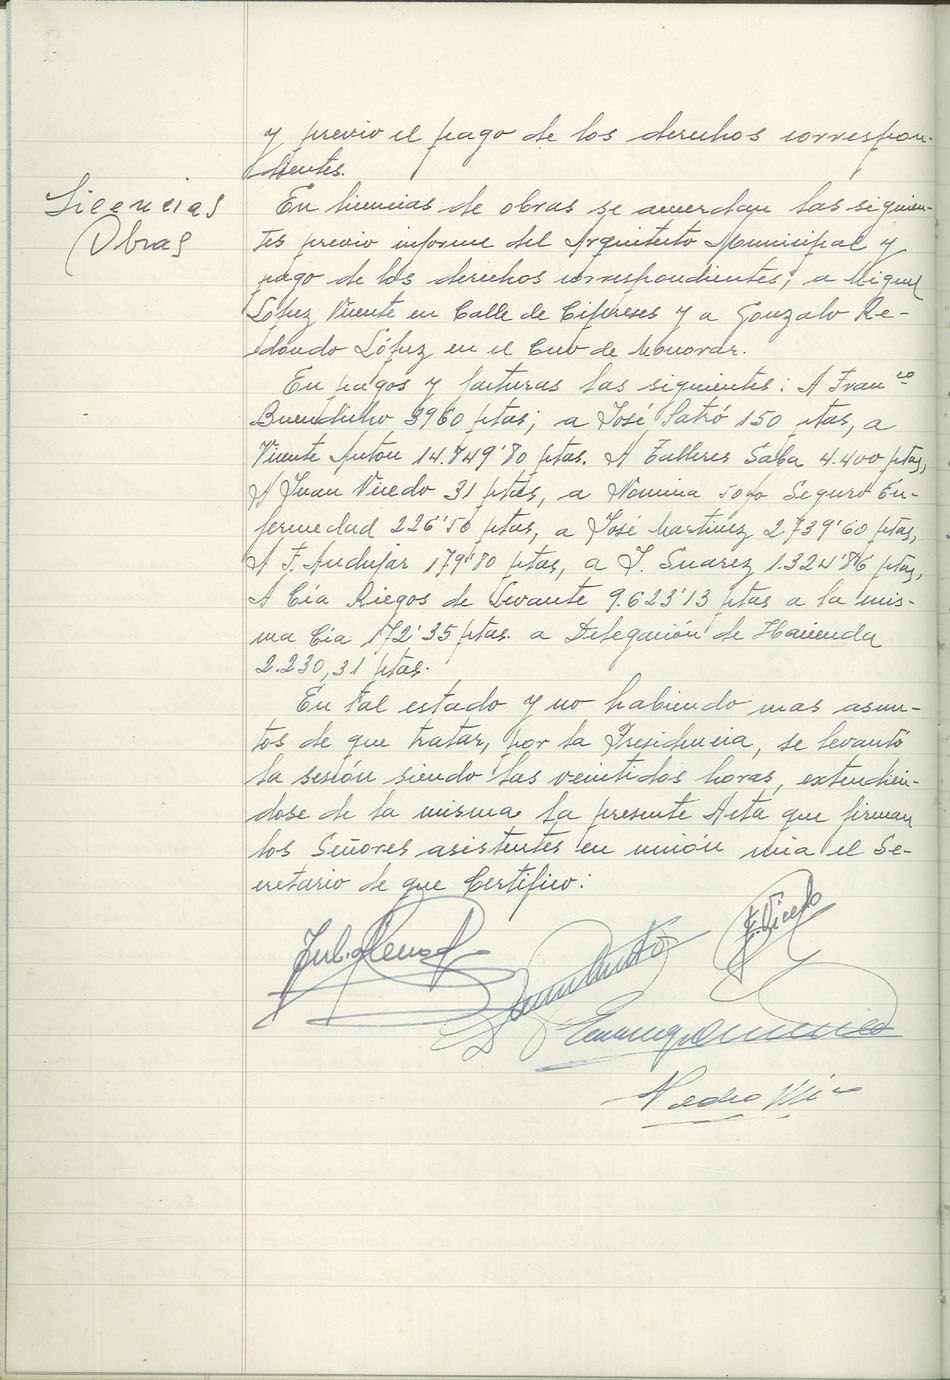 y previo el pago de los derechos correspon-
dientes.
Licencias
Obras
En licencias de obras se acuerdan las siguien-
tes previo informe del Arquitecto Municipal y
pago de los derechos correspondientes; a Miguel
López Vicente en Calle de Cipreses y a Gonzalo Re-
dondo López en el Cno de Monovar.
En pagos y facturas las siguientes: A Franco
Buendicho 3960 ptas; a José Satró 150 ptas, a
Vicente Anton 14.849'80 ptas. A Talleres Saba 4.400 ptas,
A Juan Vicedo 31 ptas, a Nomina Seguro En-
fermedad 226'50 ptas, a José Martinez 2739'60 ptas,
A F. Andujar 179'80 ptas, a J. Suarez 1.324'86 ptas,
A Cía Riegos de Levante 9.623'13 ptas a la mis-
ma Cia 172'35 ptas. a Delegación de Hacienda
2.230,31 ptas.
En tal estado y no habiendo mas asun-
tos de que tratar, por la Presidencia, se levantó
la sesión siendo las veintidos horas, extendien-
dose de la misma la presente Acta que firman
los Señores asistentes en unión mia el Se-
cretario de que Certifico:
F. Vicedo
Pedro